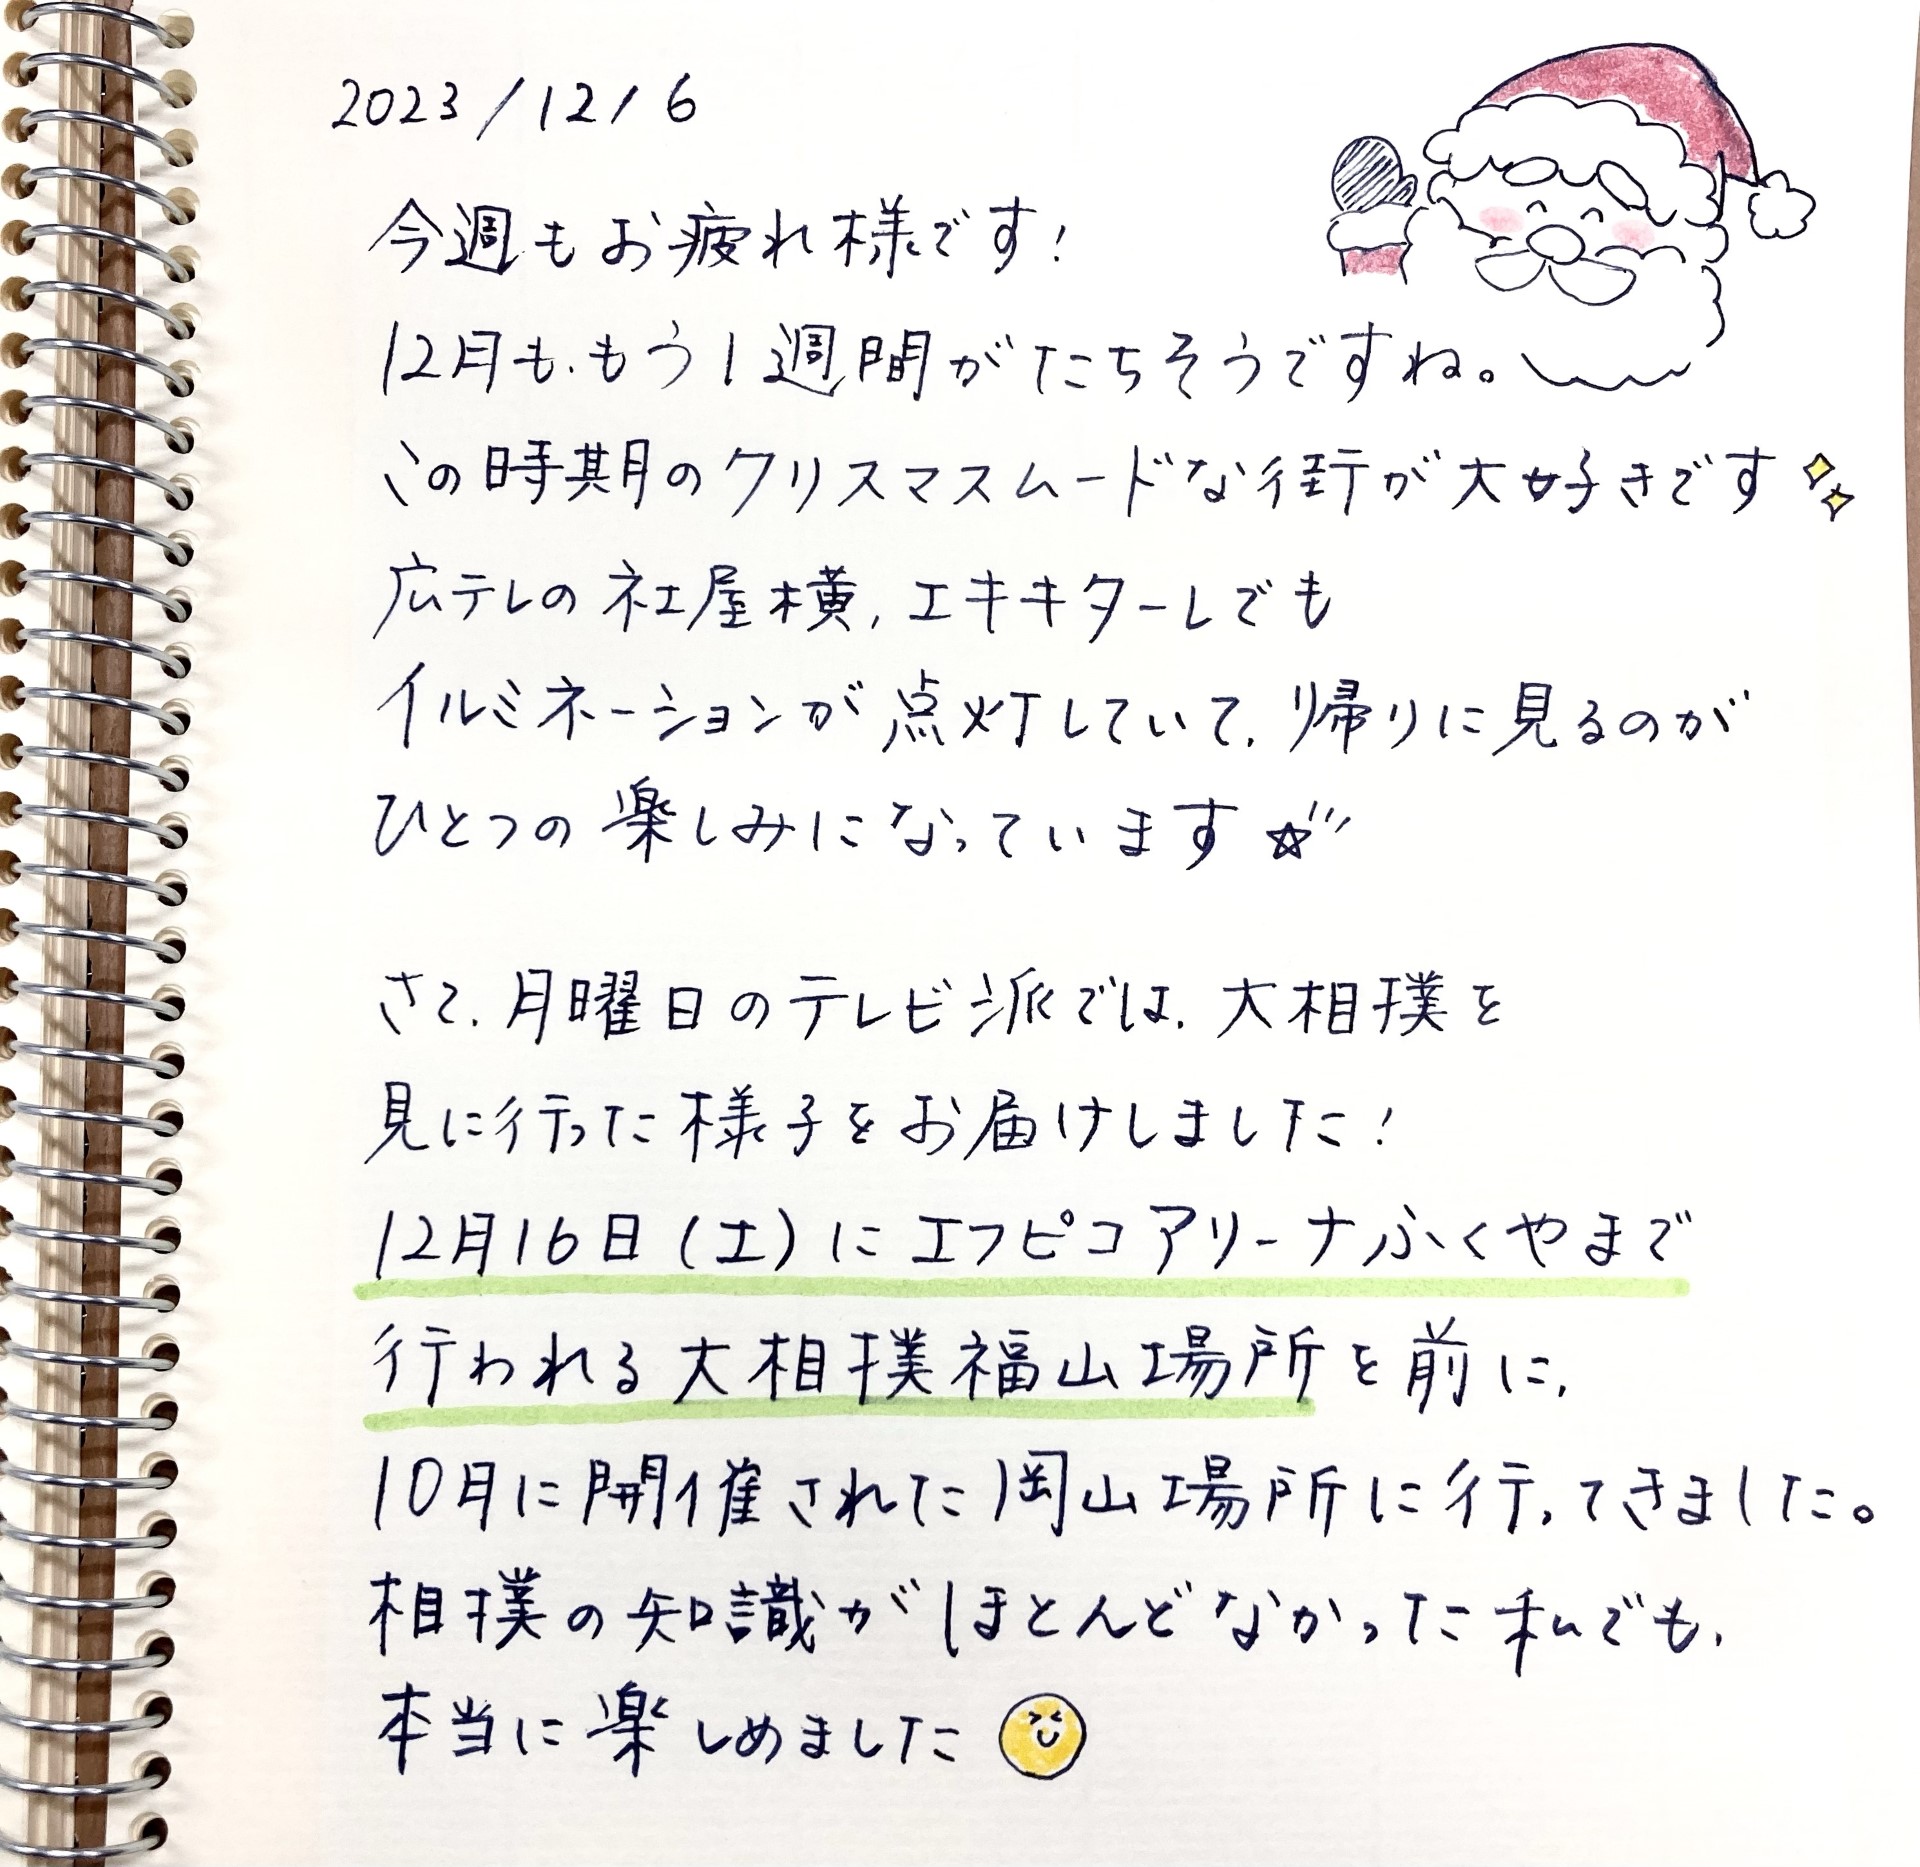 2023/12/6
今週もお疲れ様です!
12月も、もう1週間がたちそうですね。
この時期のクリスマスムードな街が大好きです
広テレの社屋横、エキキターレでも
イルミネーションが点灯していて、帰りに見るのが
ひとつの楽しみになっています☆
さて、月曜日のテレビ派では、大相撲を
見に行った様子をお届けしました!
12月16日(土)にエフピコアリーナふくやまで
行われる大相撲福山場所を前に、
10月に開催された岡山場所に行ってきました。
相撲の知識がほとんどなかった私でも、
本当に楽しめました